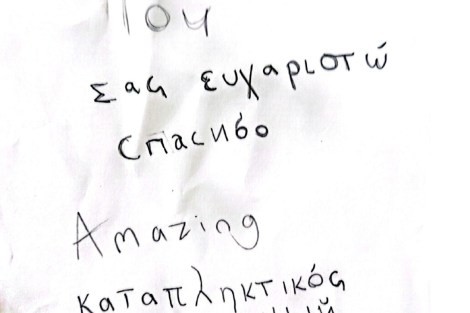 Σας ευχαριστώ
спасибо
Amazing
καταπληκτικός